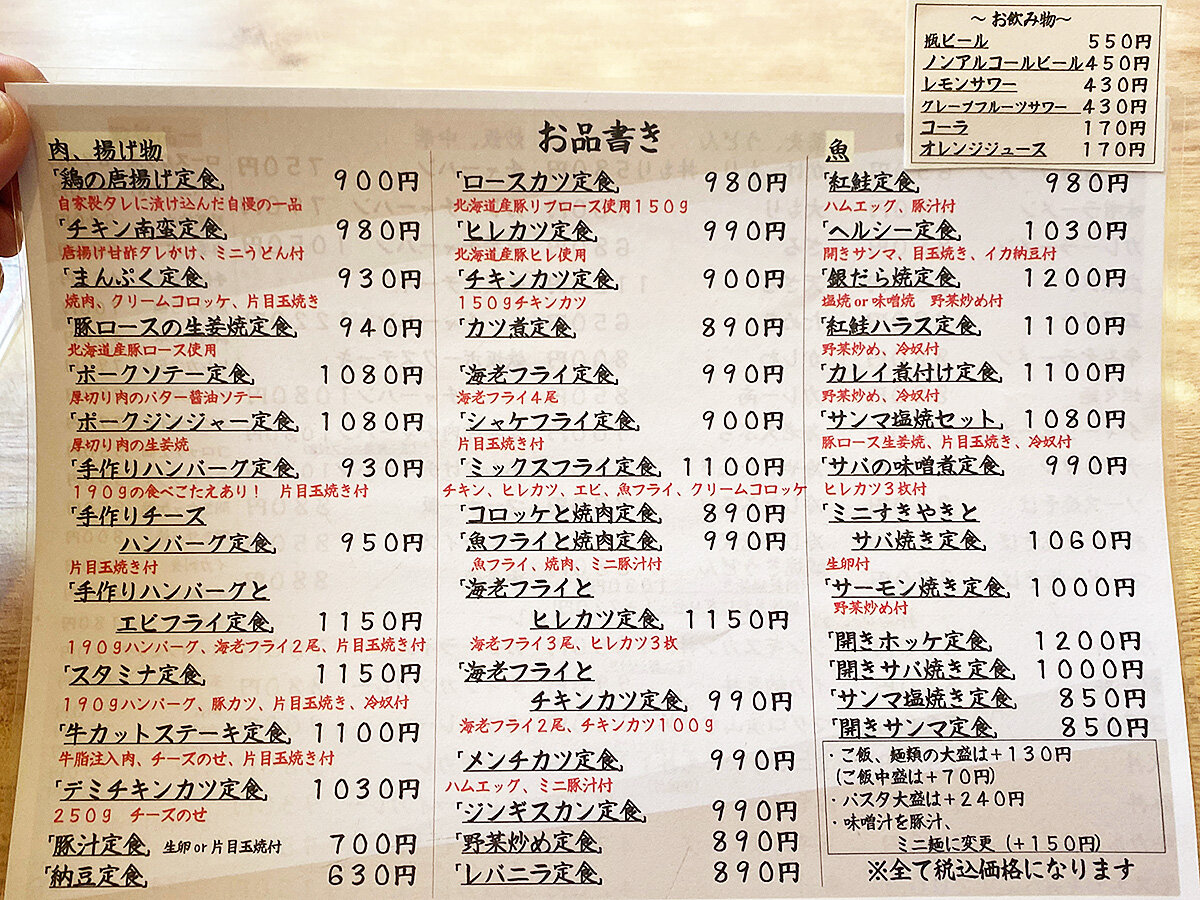 ～お飲み物～
瓶ビール 550円
ノンアルコールビール 450円
レモンサワー 430円
グレープフルーツサワー 430円
コーラ 170円
オレンジジュース 170円
お品書き
肉、揚げ物
「鶏の唐揚げ定食」 900円
自家製タレに漬け込んだ自慢の一品
「チキン南蛮定食」 980円
唐揚げ甘酢タレかけ、ミニうどん付
「まんぷく定食」 930円
焼肉、クリームコロッケ、片目玉焼き
「豚ロースの生姜焼定食」 940円
北海道産豚ロース使用
「ポークソテー定食」 1080円
厚切り肉のバター醤油ソテー
「ポークジンジャー定食」 1080円
厚切り肉の生姜焼
「手作りハンバーグ定食」 930円
190gの食べごたえあり！ 片目玉焼き付
「手作りチーズ
ハンバーグ定食」 950円
片目玉焼き付
「手作りハンバーグと
エビフライ定食」 1150円
190gハンバーグ、海老フライ2尾、片目玉焼き付
「スタミナ定食」 1150円
190gハンバーグ、豚カツ、片目玉焼き、冷奴付
「牛カットステーキ定食」 1100円
牛脂注入肉、チーズのせ、片目玉焼き付
「デミチキンカツ定食」 1030円
250g チーズのせ
「豚汁定食」 生卵or片目玉焼付 700円
「納豆定食」 630円
「ロースカツ定食」 980円
北海道産豚リブロース使用150g
「ヒレカツ定食」 990円
北海道産豚ヒレ使用
「チキンカツ定食」 900円
150gチキンカツ
「カツ煮定食」 890円
「海老フライ定食」 990円
海老フライ4尾
「シャケフライ定食」 900円
片目玉焼き付
「ミックスフライ定食」 1100円
チキン、ヒレカツ、エビ、魚フライ、クリームコロッケ
「コロッケと焼肉定食」 890円
「魚フライと焼肉定食」 990円
魚フライ、焼肉、ミニ豚汁付
「海老フライと
ヒレカツ定食」 1150円
海老フライ3尾、ヒレカツ3枚
「海老フライと
チキンカツ定食」 990円
海老フライ2尾、チキンカツ100g
「メンチカツ定食」 990円
ハムエッグ、ミニ豚汁付
「ジンギスカン定食」 990円
「野菜炒め定食」 890円
「レバニラ定食」 890円
魚
「紅鮭定食」 980円
ハムエッグ、豚汁付
「ヘルシー定食」 1030円
開きサンマ、目玉焼き、イカ納豆付
「銀だら焼定食」 1200円
塩焼or味噌焼 野菜炒め付
「紅鮭ハラス定食」 1100円
野菜炒め、冷奴付
「カレイ煮付け定食」 1100円
野菜炒め、冷奴付
「サンマ塩焼セット」 1080円
豚ロース生姜焼、片目玉焼き、冷奴付
「サバの味噌煮定食」 990円
ヒレカツ3枚付
「ミニすきやきと
サバ焼き定食」 1060円
生卵付
「サーモン焼き定食」 1000円
野菜炒め付
「開きホッケ定食」 1200円
「開きサバ焼き定食」 1000円
「サンマ塩焼き定食」 850円
「開きサンマ定食」 850円
・ご飯、麺類の大盛は＋130円
（ご飯中盛は＋70円）
・パスタ大盛は＋240円
・味噌汁を豚汁、
ミニ麺に変更（＋150円）
※全て税込価格になります